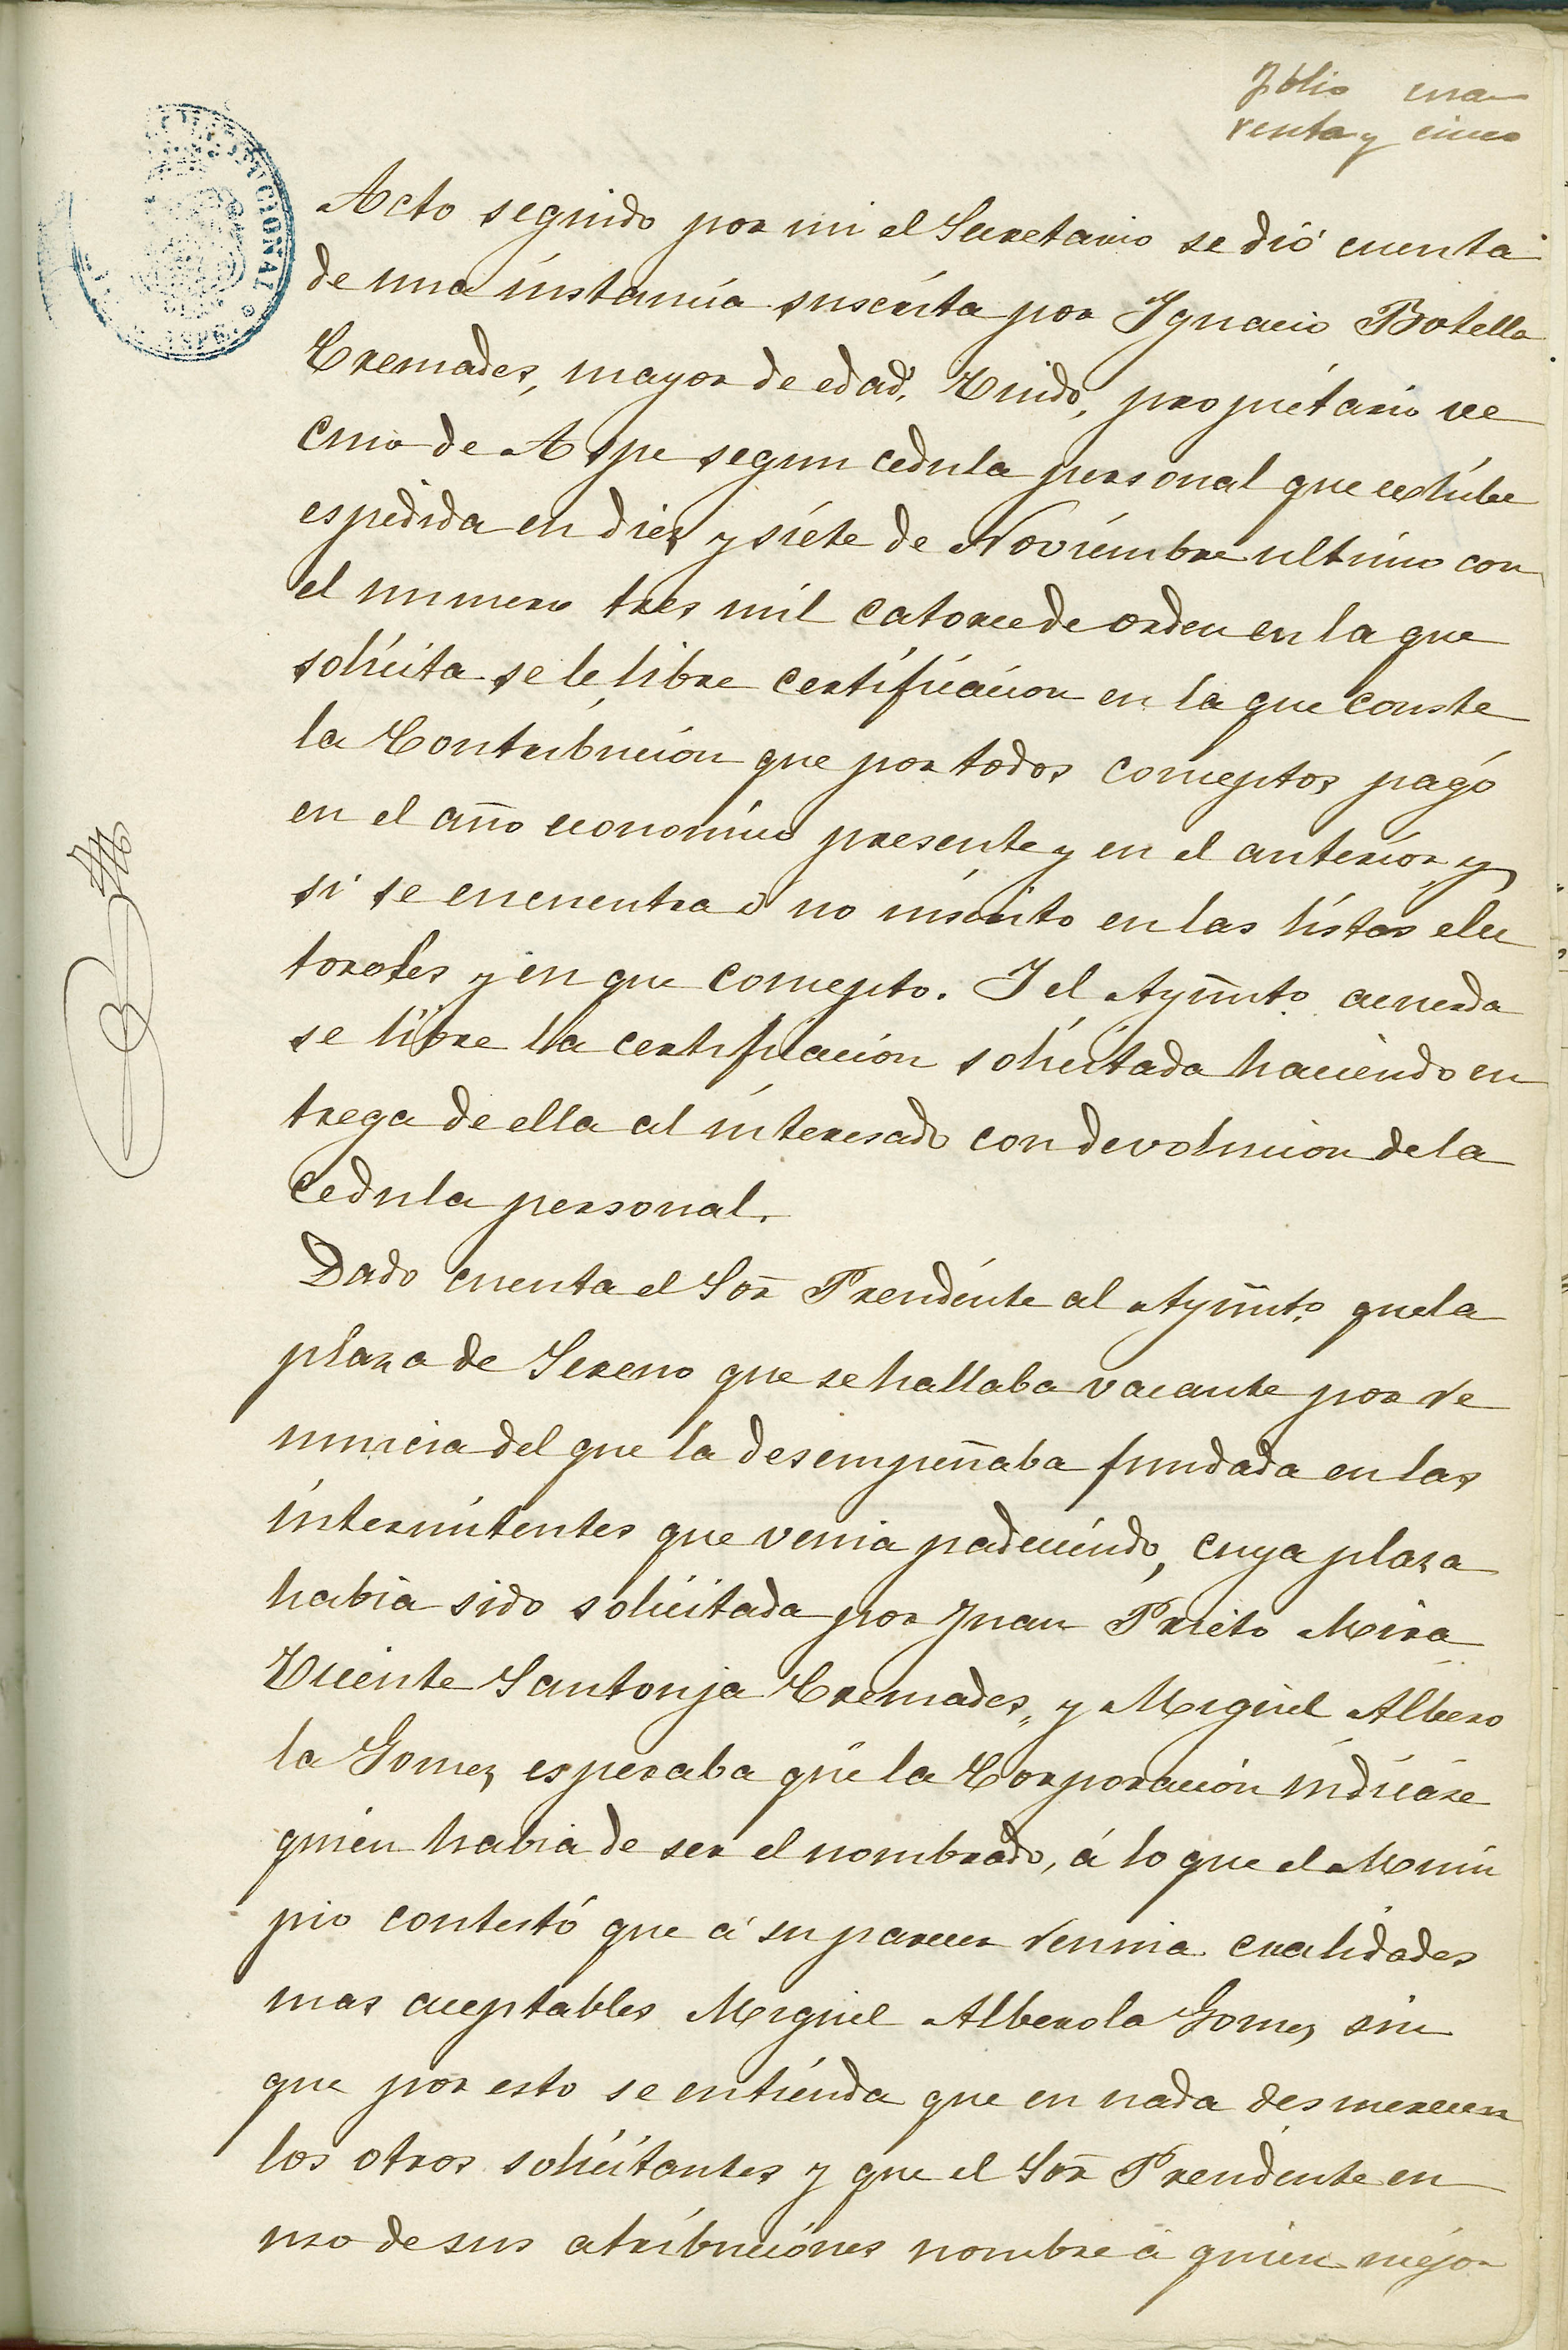 folio cua
renta y cinco
Acto seguido por mi el Secretario se dió cuenta
de una instancia suscrita por Ygnacio Botella
Cremades, mayor de edad, Viudo, propietario ve
cino de Aspe segun cedula personal que exhibe
espedida en diez y siete de Noviembre ultimo con
el numero tres mil catorce de orden en la que
solicita se le libre certificacion en la que conste
la Contribucion que por todos conceptos pagó
en el año economico presente y en el anterior y
si se encuentra ó no inscrito en las listas elec
torales y en que concepto. Y el Ayñmto. acuerda
se libre la certificacion solicitada haciendo en
trega de ella al interesado con devolucion de la
cedula personal.
Dado cuenta el Soñr Presidente al Ayñmto. que la
plaza de Sereno que se hallaba vacante por re
nuncia del que la desempeñaba fundada en las
intermitentes que venia padeciendo, cuya plaza
habia sido solicitada por Juan Prieto Mira
Vicente Santonja Cremades, y Miguel Albero
la Gomez esperaba que la Corporacion indicase
quien habia de ser el nombrado, á lo que el Munici
pio contestó que á su parecer reunia cualidades
mas aceptables Miguel Alberola Gomez sin
que por esto se entienda que en nada desmerecen
los otros solicitantes y que el Soñr Presidente en
uso de sus atribuciones nombre á quien mejor
CIONAL